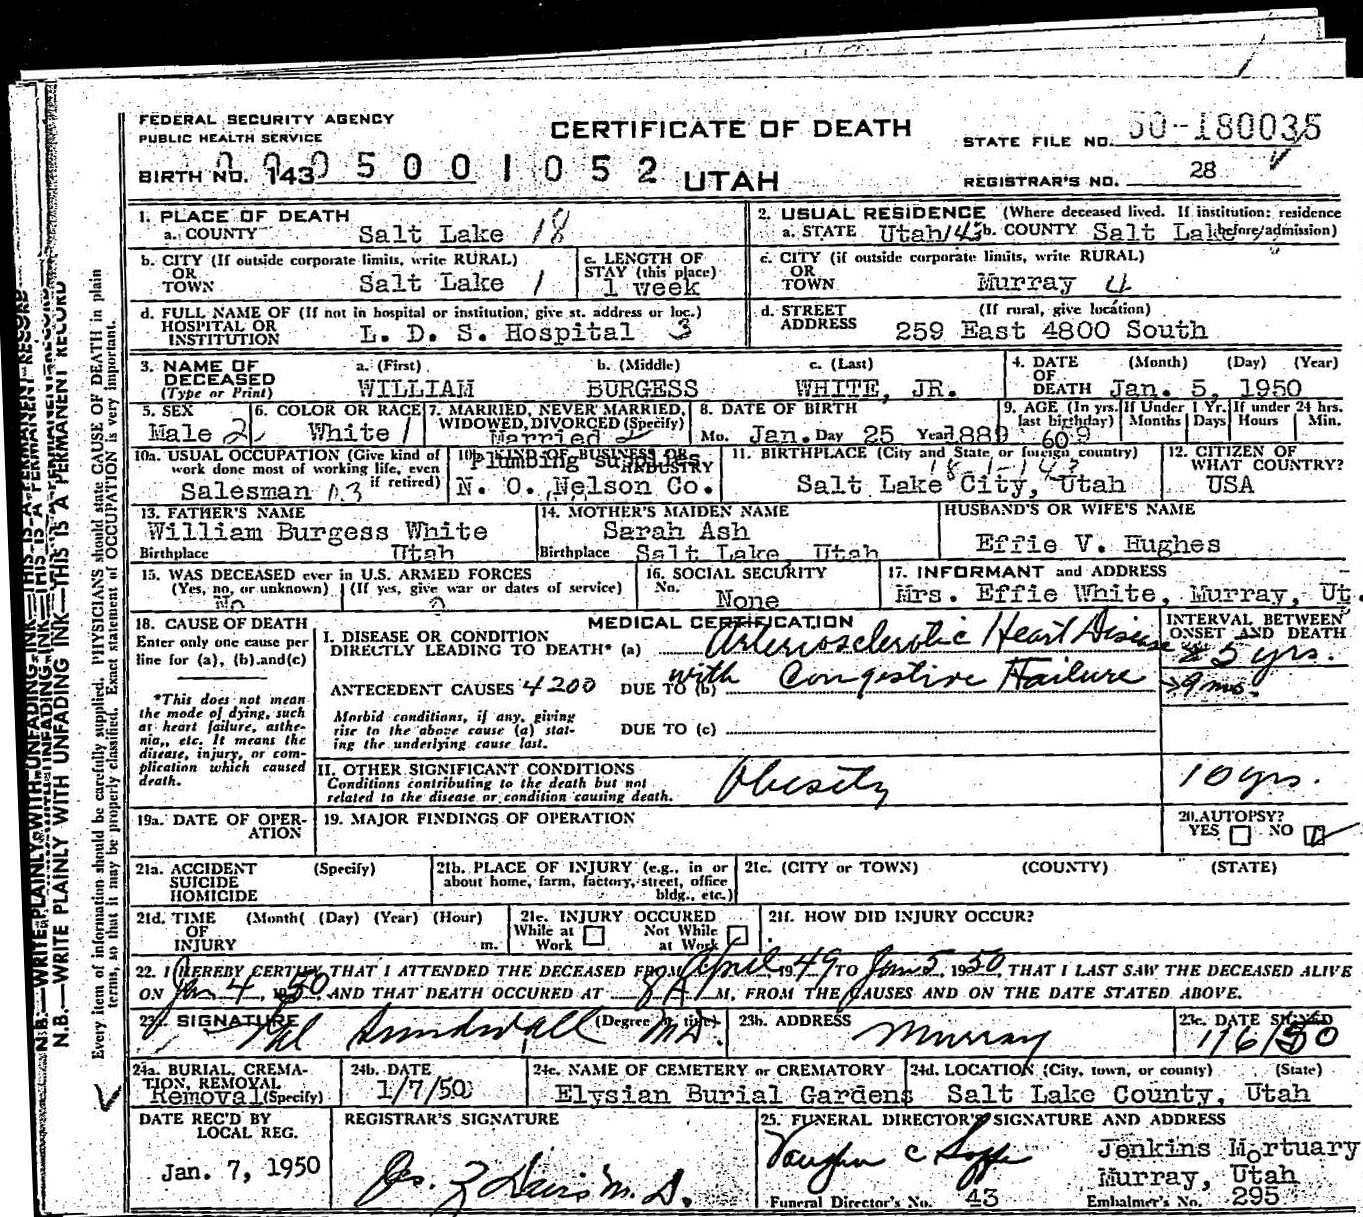 FEDERAL SECURITY AGENCY
PUBLIC HEALTH SERVICE
CERTIFICATE OF DEATH
STATE FILE NO. 50-180035
BIRTH NO. 143 0005001052 UTAH
REGISTRAR'S NO. 28
1. PLACE OF DEATH
a. COUNTY Salt Lake 18
2. USUAL RESIDENCE (Where deceased lived. If institution: residence before admission)
a. STATE Utah 143 b. COUNTY Salt Lake
b. CITY (If outside corporate limits, write RURAL)
OR
TOWN Salt Lake 1
c. LENGTH OF
STAY (this place)
1 week
c. CITY (if outside corporate limits, write RURAL)
OR
TOWN Murray 4
d. FULL NAME OF (If not in hospital or institution, give st. address or loc.)
HOSPITAL OR
INSTITUTION L. D. S. Hospital 3
d. STREET (If rural, give location)
ADDRESS 259 East 4800 South
3. NAME OF
DECEASED
(Type or Print)
a. (First) b. (Middle) c. (Last)
WILLIAM BURGESS WHITE, JR.
4. DATE (Month) (Day) (Year)
OF
DEATH Jan. 5, 1950
5. SEX
Male 2
6. COLOR OR RACE
White 1
7. MARRIED, NEVER MARRIED,
WIDOWED, DIVORCED (Specify)
Married 2
8. DATE OF BIRTH
Mo. Jan. Day 25 Year 1889
9. AGE (In yrs. last birthday)
60
If Under 1 Yr.
Months Days
If under 24 hrs.
Hours Min.
10a. USUAL OCCUPATION (Give kind of
work done most of working life, even
if retired)
Salesman
10b. KIND OF BUSINESS OR
INDUSTRY
Plumbing supplies
N. O. Nelson Co.
11. BIRTHPLACE (City and State, or foreign country)
Salt Lake City, Utah
12. CITIZEN OF
WHAT COUNTRY?
USA
13. FATHER'S NAME
William Burgess White
Birthplace Utah
14. MOTHER'S MAIDEN NAME
Sarah Ash
Birthplace Salt Lake, Utah
HUSBAND'S OR WIFE'S NAME
Effie V. Hughes
15. WAS DECEASED ever in U.S. ARMED FORCES
(Yes, no, or unknown) (If yes, give war or dates of service)
No
16. SOCIAL SECURITY
No. None
17. INFORMANT and ADDRESS
Mrs. Effie White, Murray, Ut.
18. CAUSE OF DEATH
Enter only one cause per
line for (a), (b) and (c)
*This does not mean
the mode of dying, such
as heart failure, asthe-
nia, etc. It means the
disease, injury, or com-
plication which caused
death.
MEDICAL CERTIFICATION
I. DISEASE OR CONDITION
DIRECTLY LEADING TO DEATH* (a) Arteriosclerotic Heart Disease
ANTECEDENT CAUSES 4200 DUE TO (b) with Congestive Failure
Morbid conditions, if any, giving
rise to the above cause (a) stat-
ing the underlying cause last.
DUE TO (c)
INTERVAL BETWEEN
ONSET AND DEATH
5 yrs.
9 mo.
II. OTHER SIGNIFICANT CONDITIONS
Conditions contributing to the death but not
related to the disease or condition causing death.
Obesity 10 yrs.
19a. DATE OF OPER-
ATION
19. MAJOR FINDINGS OF OPERATION
20. AUTOPSY?
YES NO
21a. ACCIDENT (Specify)
SUICIDE
HOMICIDE
21b. PLACE OF INJURY (e.g., in or
about home, farm, factory, street, office
bldg., etc.)
21c. (CITY or TOWN) (COUNTY) (STATE)
21d. TIME (Month( (Day) (Year) (Hour)
OF
INJURY m.
21e. INJURY OCCURED
While at Work Not While at Work
21f. HOW DID INJURY OCCUR?
22. I HEREBY CERTIFY THAT I ATTENDED THE DECEASED FROM April 1949 TO Jan 5, 1950, THAT I LAST SAW THE DECEASED ALIVE
ON Jan 4, 1950 AND THAT DEATH OCCURED AT 8 A M, FROM THE CAUSES AND ON THE DATE STATED ABOVE.
23. SIGNATURE (Degree or title)
Sundwall M.D.
23b. ADDRESS
Murray
23c. DATE SIGNED
1/6/50
24a. BURIAL, CREMA-
TION, REMOVAL
(Specify)
Removal
24b. DATE
1/7/50
24c. NAME OF CEMETERY or CREMATORY
Elysian Burial Gardens
24d. LOCATION (City, town, or county) (State)
Salt Lake County, Utah
DATE REC'D BY
LOCAL REG.
Jan. 7, 1950
REGISTRAR'S SIGNATURE
25. FUNERAL DIRECTOR'S SIGNATURE AND ADDRESS
Vaughn C
Jenkins Mortuary
Murray, Utah
Funeral Director's No. 43 Embalmer's No. 295
N.B.—WRITE PLAINLY WITH UNFADING INK—THIS IS A PERMANENT RECORD
Every item of information should be carefully supplied. PHYSICIANS should state CAUSE OF DEATH in plain
terms, so that it may be properly classified. Exact statement of OCCUPATION is very important.